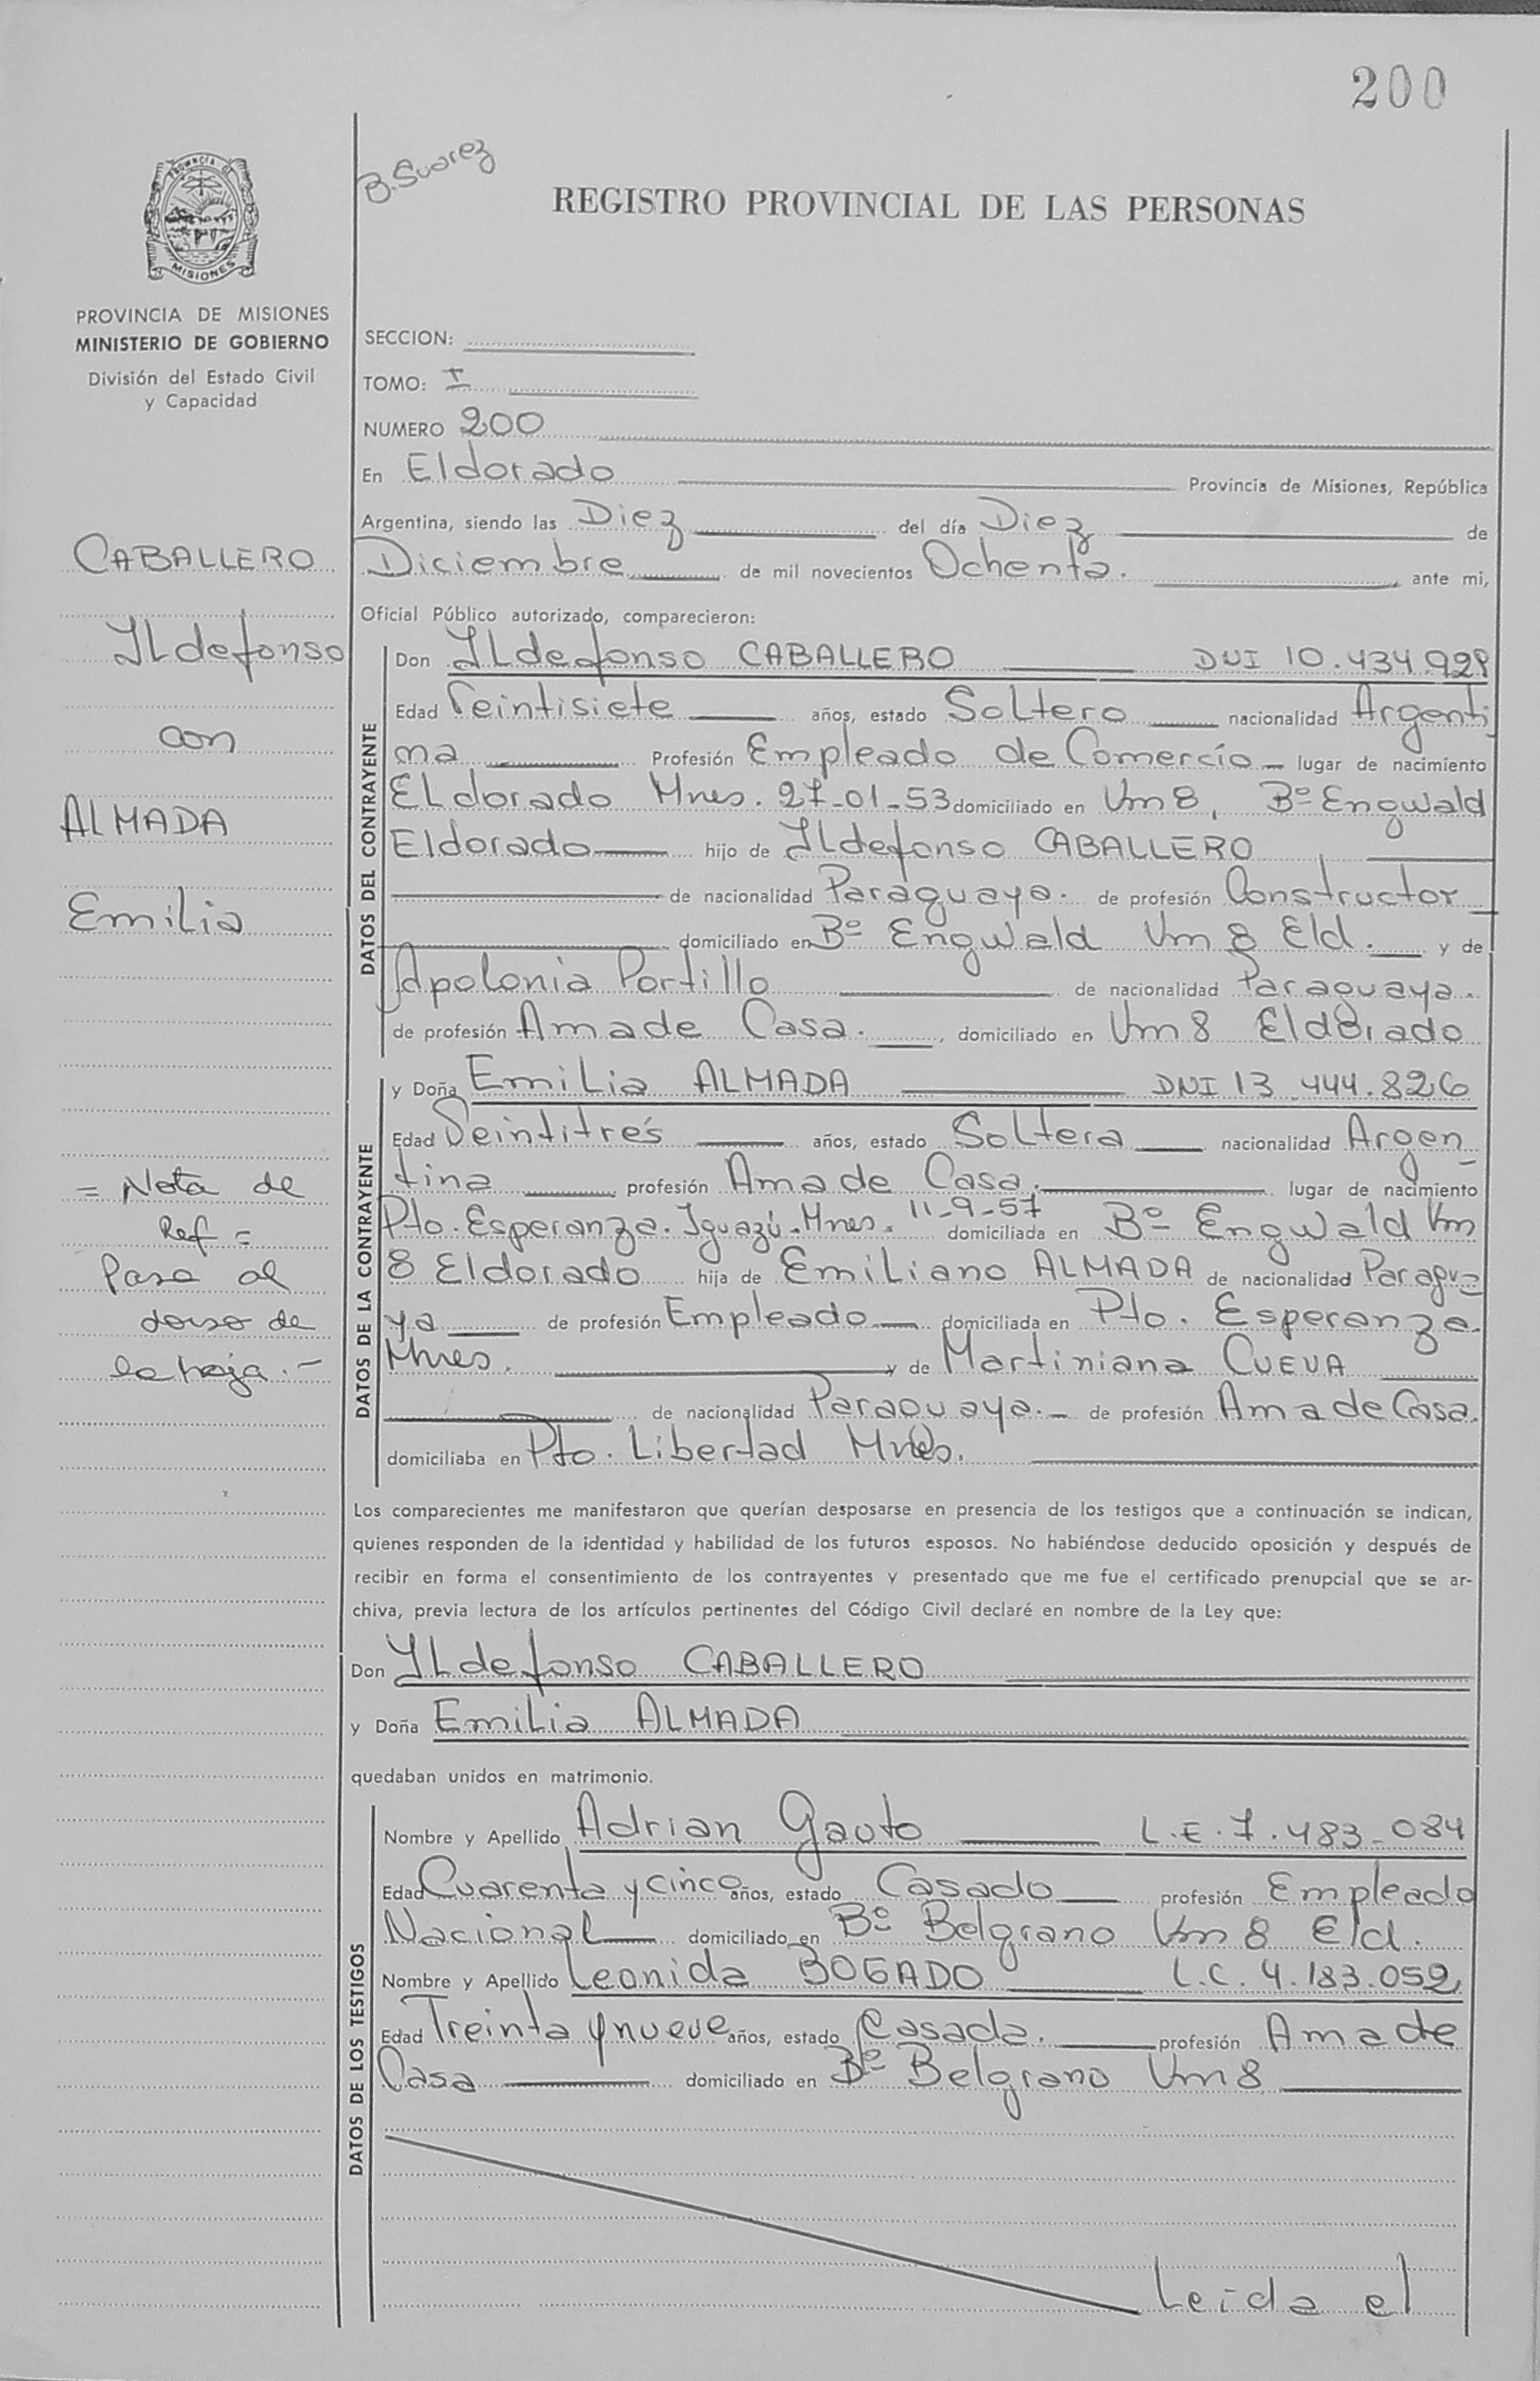 200
B. Suarez
REGISTRO PROVINCIAL DE LAS PERSONAS
PROVINCIA DE MISIONES
PROVINCIA DE MISIONES
MINISTERIO DE GOBIERNO
División del Estado Civil
y Capacidad
SECCION:
TOMO: I
NUMERO 200
En Eldorado Provincia de Misiones, República
Argentina, siendo las Diez del día Diez de
Diciembre de mil novecientos Ochenta. ante mi,
Oficial Público autorizado, comparecieron:
CABALLERO
ILdefonso
con
ALMADA
Emilia
= Nota de
Ref =
Pasa al
dorso de
la hoja.-
DATOS DEL CONTRAYENTE
Don ILdefonso CABALLERO DNI 10.434.929
Edad Veintisiete años, estado Soltero nacionalidad Argenti
na Profesión Empleado de Comercio lugar de nacimiento
ELdorado Mnes. 27-01-53 domiciliado en Km 8, Bº Engwald
Eldorado hijo de ILdefonso CABALLERO
de nacionalidad Paraguaya. de profesión Constructor
domiciliado en Bº Engwald Km 8 Eld. y de
Apolonia Portillo de nacionalidad Paraguaya.
de profesión Ama de Casa. , domiciliado en Km 8 Eldorado
DATOS DE LA CONTRAYENTE
y Doña Emilia ALMADA DNI 13.444.826
Edad Veintitrés años, estado Soltera nacionalidad Argen-
tina profesión Ama de Casa. lugar de nacimiento
Pto. Esperanza. Iguazú. Mnes. 11-9-57 domiciliada en Bº Engwald Km
8 Eldorado hija de Emiliano ALMADA de nacionalidad Paragua-
ya de profesión Empleado domiciliada en Pto. Esperanza.
Mnes. y de Martiniana CUEVA
de nacionalidad Paraguaya.- de profesión Ama de Casa.
domiciliaba en Pto. Libertad Mnes.
Los comparecientes me manifestaron que querían desposarse en presencia de los testigos que a continuación se indican,
quienes responden de la identidad y habilidad de los futuros esposos. No habiéndose deducido oposición y después de
recibir en forma el consentimiento de los contrayentes y presentado que me fue el certificado prenupcial que se ar-
chiva, previa lectura de los artículos pertinentes del Código Civil declaré en nombre de la Ley que:
Don ILdefonso CABALLERO
y Doña Emilia ALMADA
quedaban unidos en matrimonio.
DATOS DE LOS TESTIGOS
Nombre y Apellido Adrian Gauto L.E. 7.483-084
Edad Cuarenta y cinco años, estado Casado profesión Empleado
Nacional domiciliado en Bº Belgrano Km 8 Eld.
Nombre y Apellido Leonida BOGADO L.C. 4.183.052
Edad Treinta y nueve años, estado Casada. profesión Ama de
Casa domiciliado en Bº Belgrano Km 8
Leida el